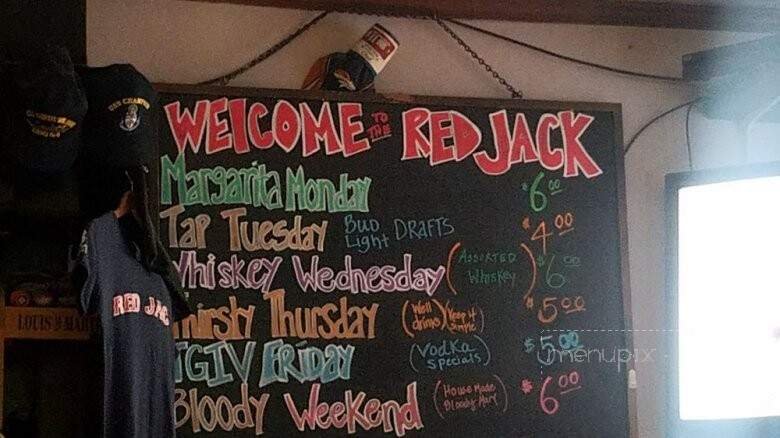 WELCOME TO THE RED JACK
Margarita Monday $6.00
Tap Tuesday Bud Light DRAFTS $4.00
Whiskey Wednesday (ASSORTED Whiskey) $6.00
Thirsty Thursday (Well drinks) (Keep it simple) $5.00
TGIV FRIDAY (Vodka specials) $5.00
Bloody Weekend (House Made Bloody Mary) $6.00
RED JACK
USS
LOUIS
menupix